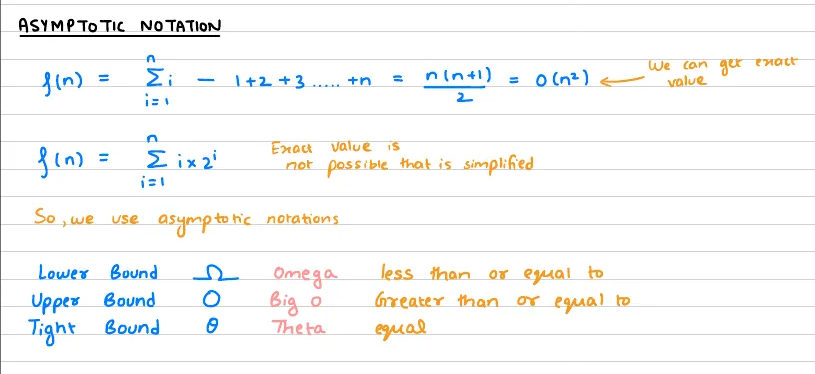 ASYMPTOTIC NOTATION
f(n) = n Σ i=1 i – 1+2+3.....+n = n(n+1)/2 = O(n²) ← We can get exact value
f(n) = n Σ i=1 i × 2^i Exact value is not possible that is simplified
So, we use asymptotic notations
Lower Bound Ω Omega less than or equal to
Upper Bound O Big O Greater than or equal to
Tight Bound θ Theta equal